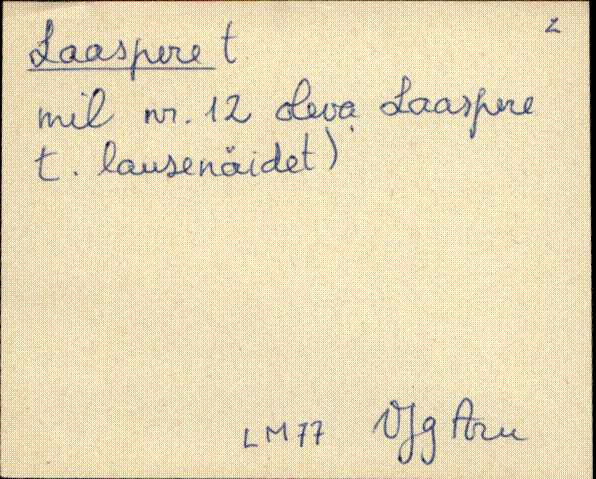 2
Laaspere t
mil nr. 12 oleva Laaspere
t. lausenäidet)
LM77 VJg Aru